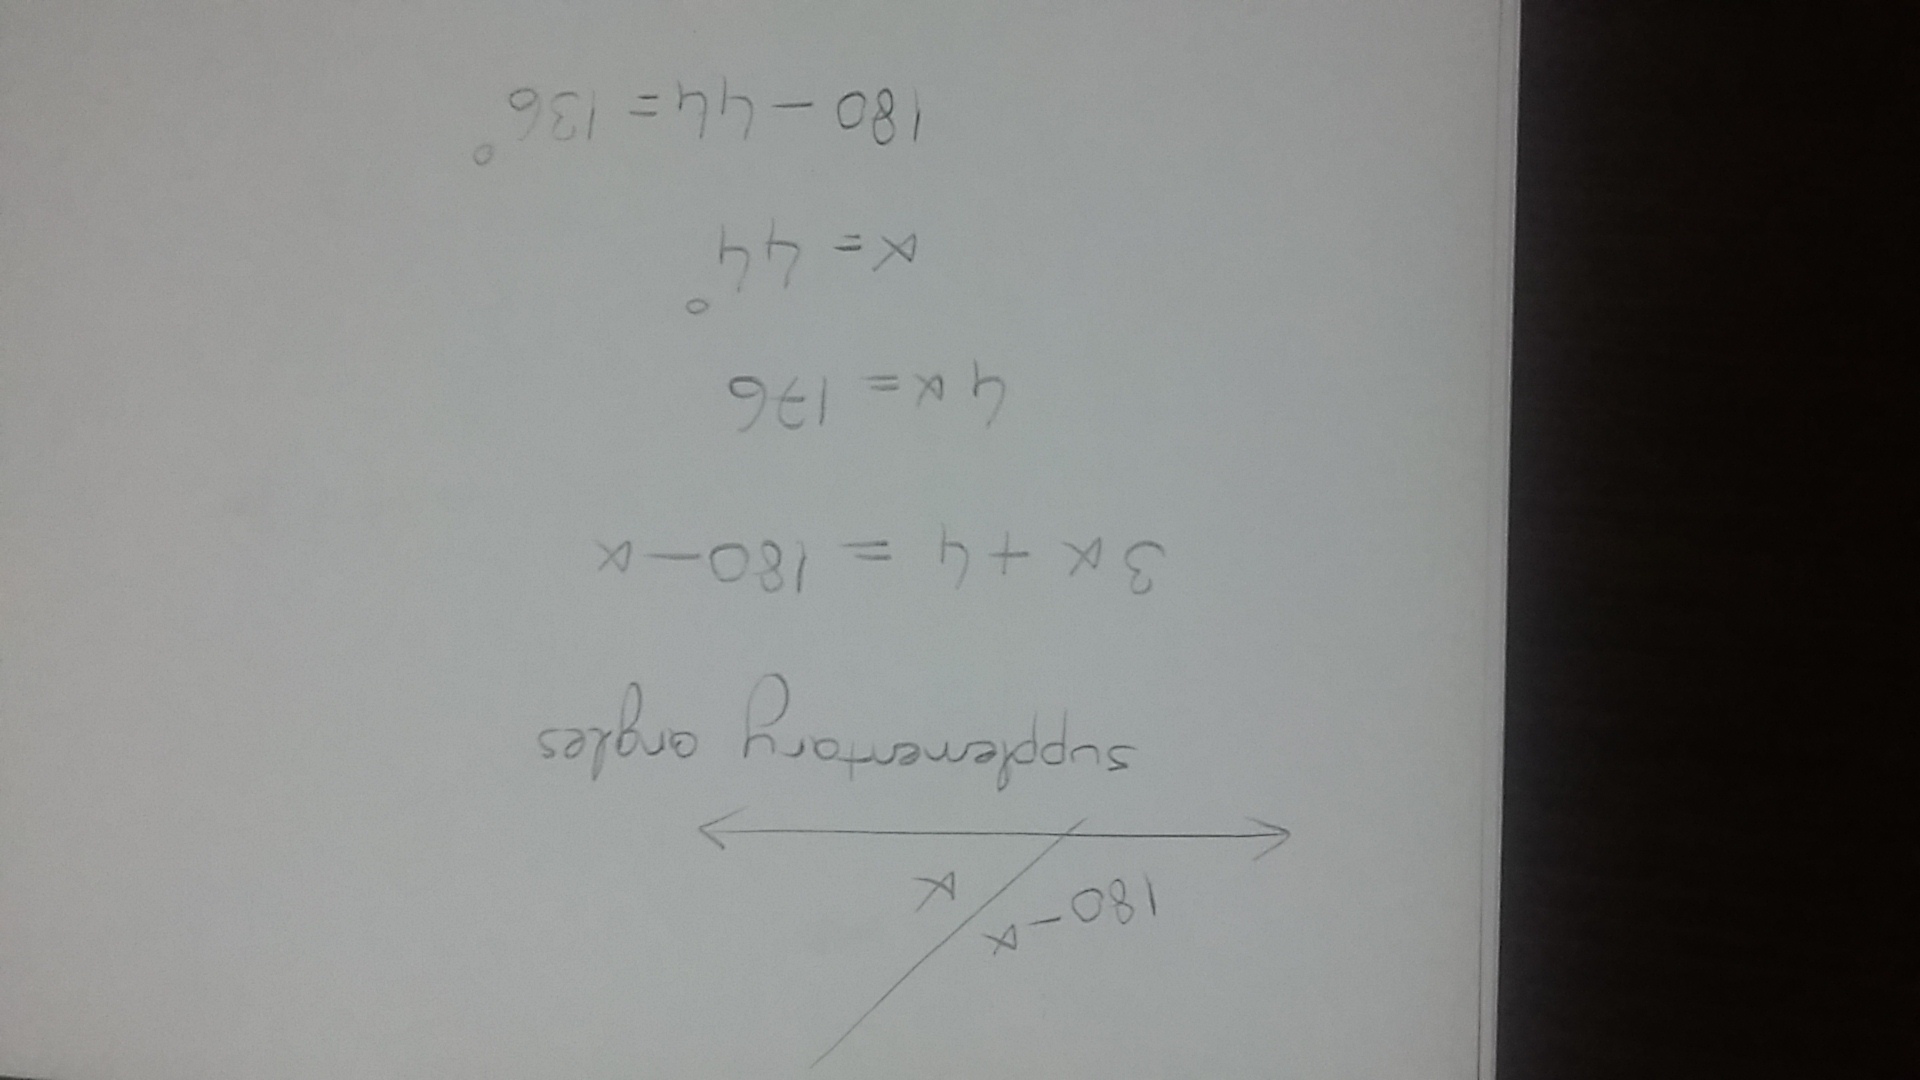 180-x
x
supplementary angles
3x + 4 = 180-x
4x = 176
x = 44°
180 - 44 = 136°